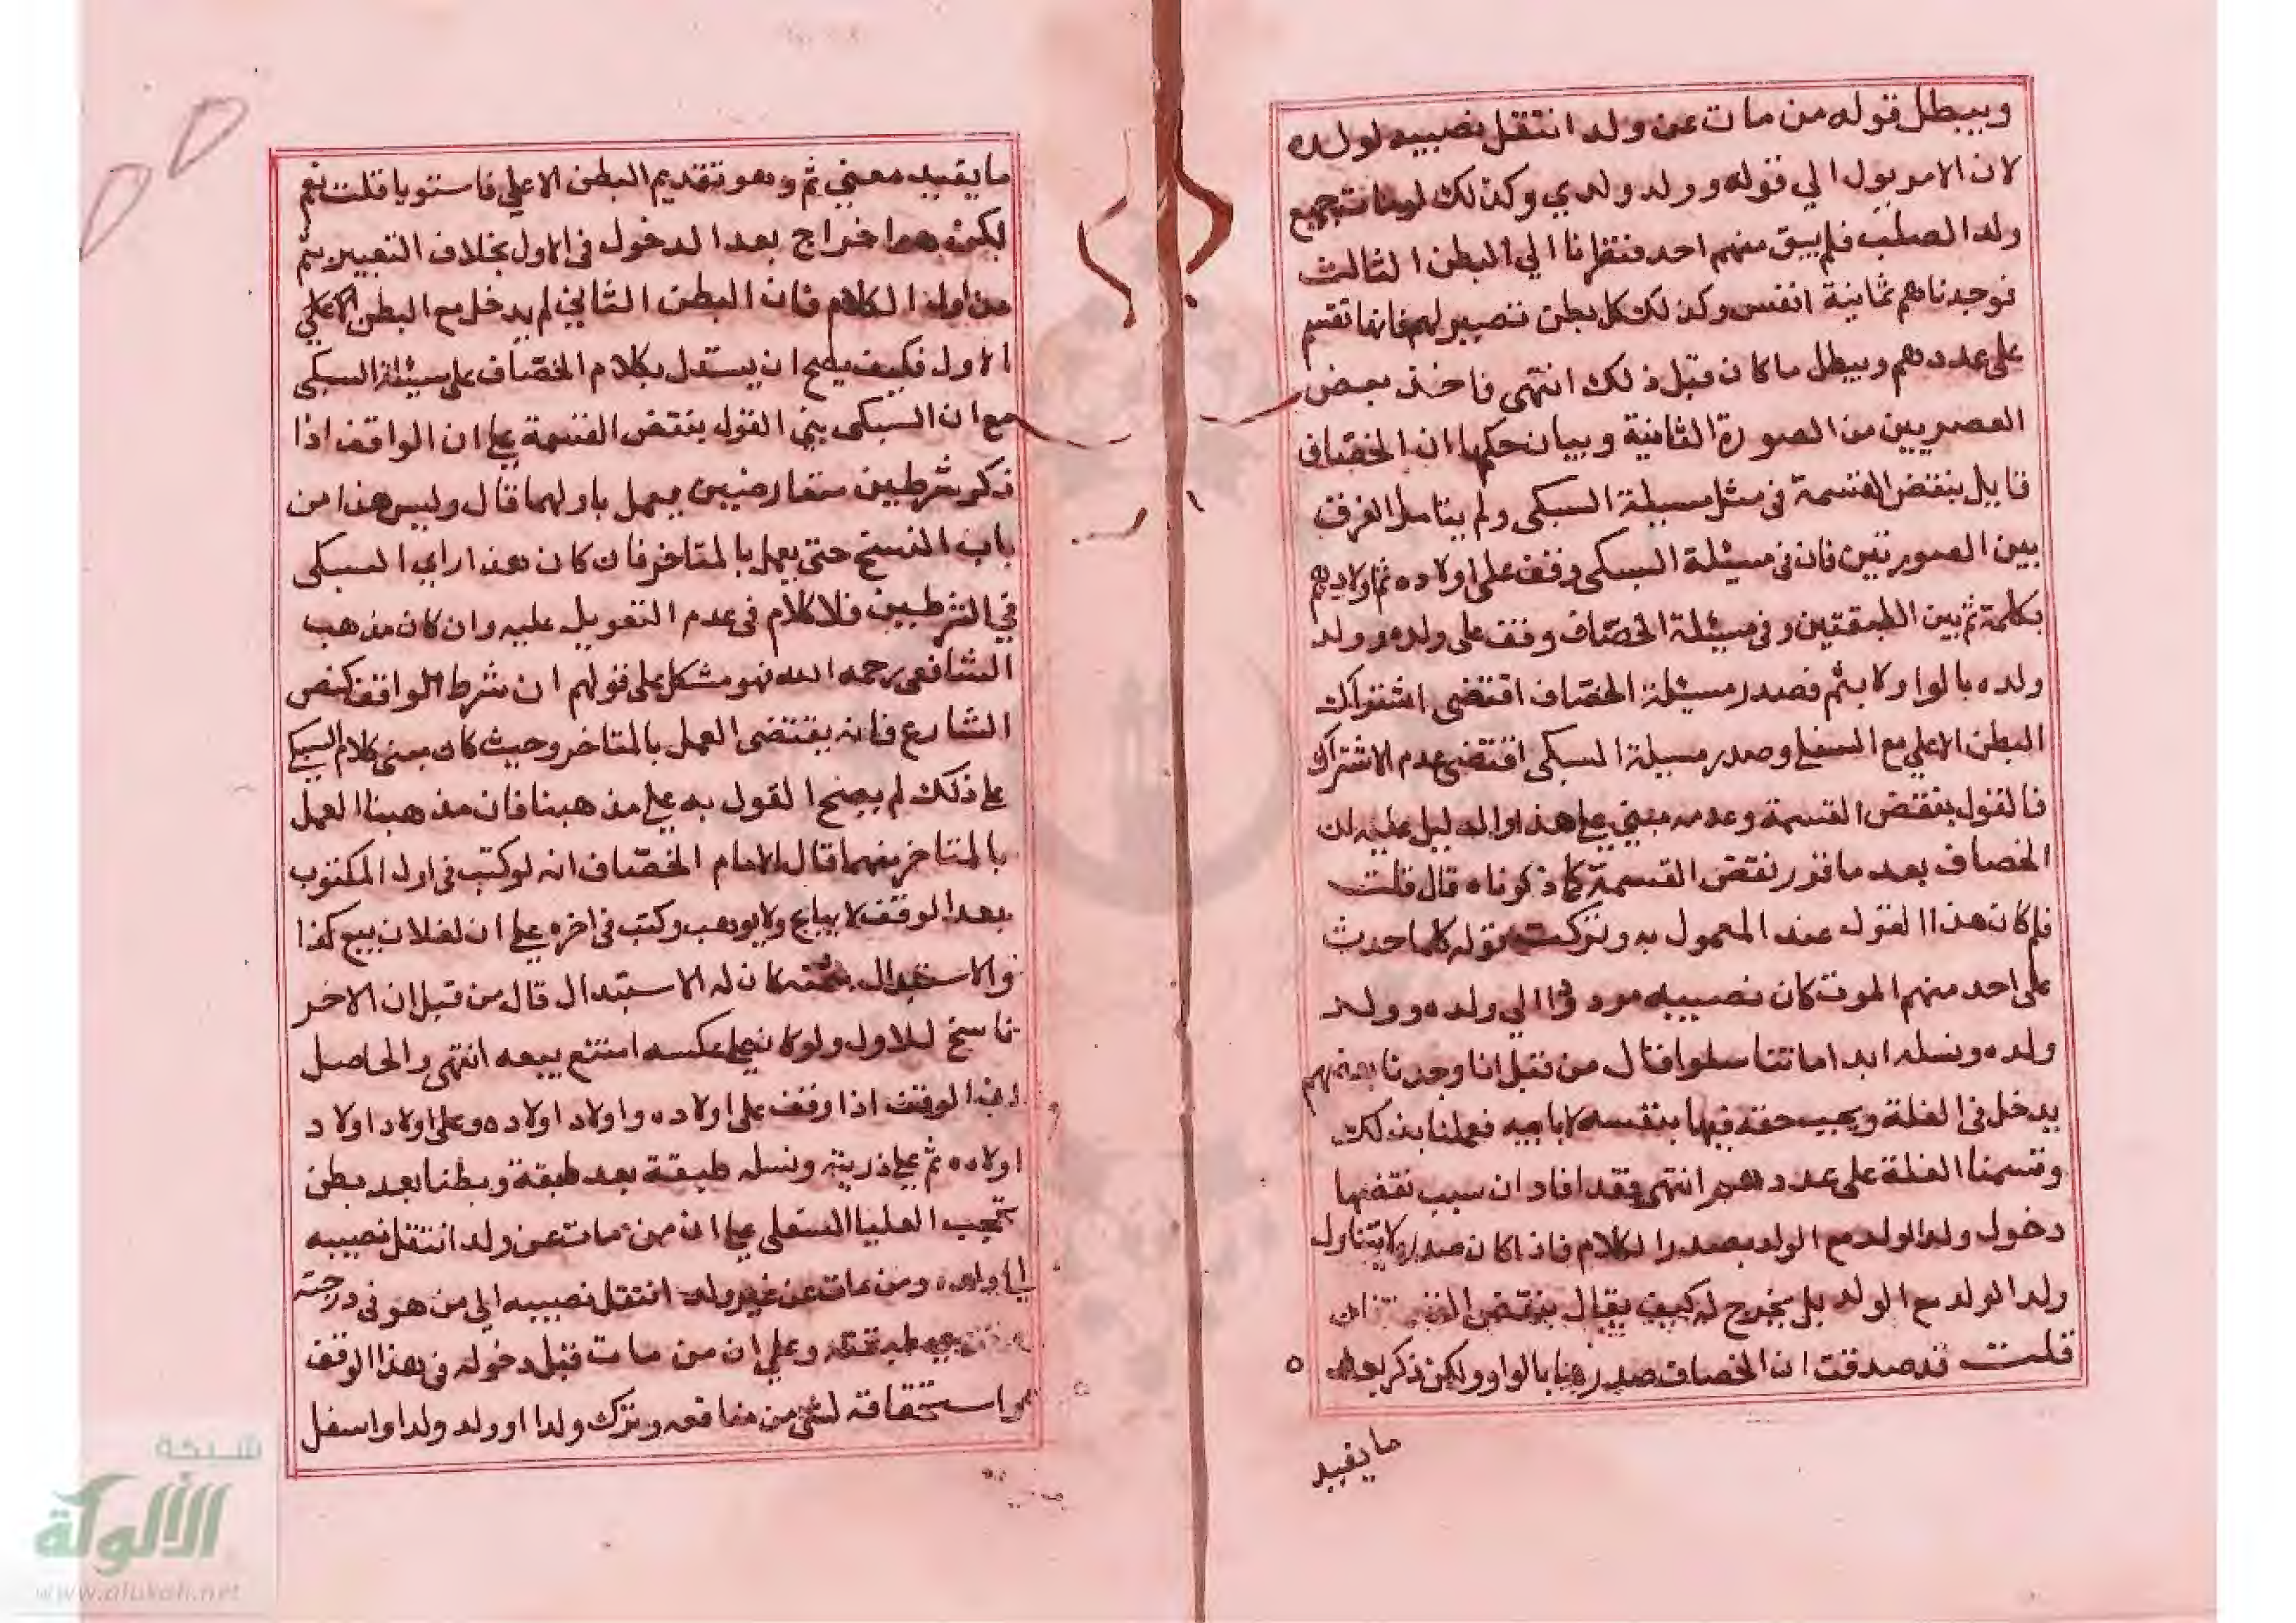 ويبطل قوله من مات عن ولد انتقل نصيبه لولده
لان الامر يول الي قوله وولد ولدي وكذلك لو مات جميع
ولد الصلب فلم يبق منهم احد فنظرنا الي البطن الثالث
فوجدناهم ثمانية انفس وكذلك كل بطن تصير لهم فانها تقسم
على عددهم ويبطل ما كان قبل ذلك انتهى فاخذ بعض
العصريين من الصورة الثانية وبيان حكمها ان الخصاف
قايل بنقض القسمة في مثل مسيلة السبكى ولم يتامل الفرق
بين الصورتين فان في مسئلة السبكى وقف على اولاده ثم اولادهم
بكلمة ثم بين الطبقتين وفى مسئلة الخصّاف وقف على ولده وولد
ولده بالواو لا بثم فصدر مسئلة الخصّاف اقتضى اشتراك
البطن الاعلي مع السفلي وصدر مسيلة السبكى اقتضى عدم الاشتراك
فالقول بنقض القسمة وعدمه مبني علي هذا والدليل عليه ان
الخصاف بعد ما قرر نقض القسمة كما ذكرناه قال قلت
فلم كان هذا القول عند المعمول به وتركت قوله كلما حدث
على احد منهم الموت كان نصيبه مردودا الي ولده وولد
ولده ونسله ابدا ما تناسلوا قال من قبل انا وجدنا بعضهم
يدخل في الغلة ويجب حقه فيها بنفسه لا بابيه فعملنا بذلك
وقسمنا الغلة على عددهم انتهى فقد افاد ان سبب نقضها
دخول ولد الولد مع الولد بصدر الكلام فاذا كان صدره لا يتناول
ولد الولد مع الولد بل مخرج له كيف يقال بنقض القسمة فان
قلت قد صدقت ان الخصاف صدرها بالواو ولكن ذكر بعده
ما يفيد
ما يفيد معني ثم وهو تقديم البطن الاعلي فاستويا قلت نعم
لكن هو اخراج بعد الدخول في الاول بخلاف التعبير بثم
من اول الكلام فان البطن الثاني لم يدخل مع البطن الاعلي
الاول فكيف يصح ان يستدل بكلام الخصّاف على مسئلة السبكى
مع ان السبكى بني القول بنقض القسمة علي ان الواقف اذا
ذكر شرطين متعارضين يعمل باولهما قال وليس هذا من
باب النسخ حتى يعمل بالمتاخر فان كان هذا راي السبكى
في الشرطين فلا كلام في عدم التعويل عليه وان كان مذهب
الشافعى رحمه الله فهو مشكل على قولهم ان شرط الواقف كنص
الشارع فانه يقتضى العمل بالمتاخر وحيث كان مبنى كلام السبكي
علي ذلك لم يصح القول به علي مذهبنا فان مذهبنا العمل
بالمتاخر منهما قال الامام الخصّاف انه لو كتب في اول المكتوب
بعد الوقف لا يباع ولا يوهب وكتب في اخره علي ان لفلان بيع كذا
والاستبدال بثمنه كان له الاستبدال قال من قبل ان الاخر
ناسخ للاول ولو كان علي عكسه امتنع بيعه انتهى والحاصل
ان الوقف اذا وقف على اولاده واولاد اولاده وعلى اولاد اولاد
اولاده ثم علي ذريته ونسله طبقة بعد طبقة وبطنا بعد بطن
تحجب العليا السفلى علي ان من مات عن ولد انتقل نصيبه
الي ولده ومن مات عن غير ولد انتقل نصيبه الي من هو في درجته
طبقته وعلي ان من مات قبل دخوله في هذا الوقف
واستحقاقه لشئ من منافعه وترك ولدا او ولد ولد او اسفل
شبكة
الألوكة
www.alukah.net